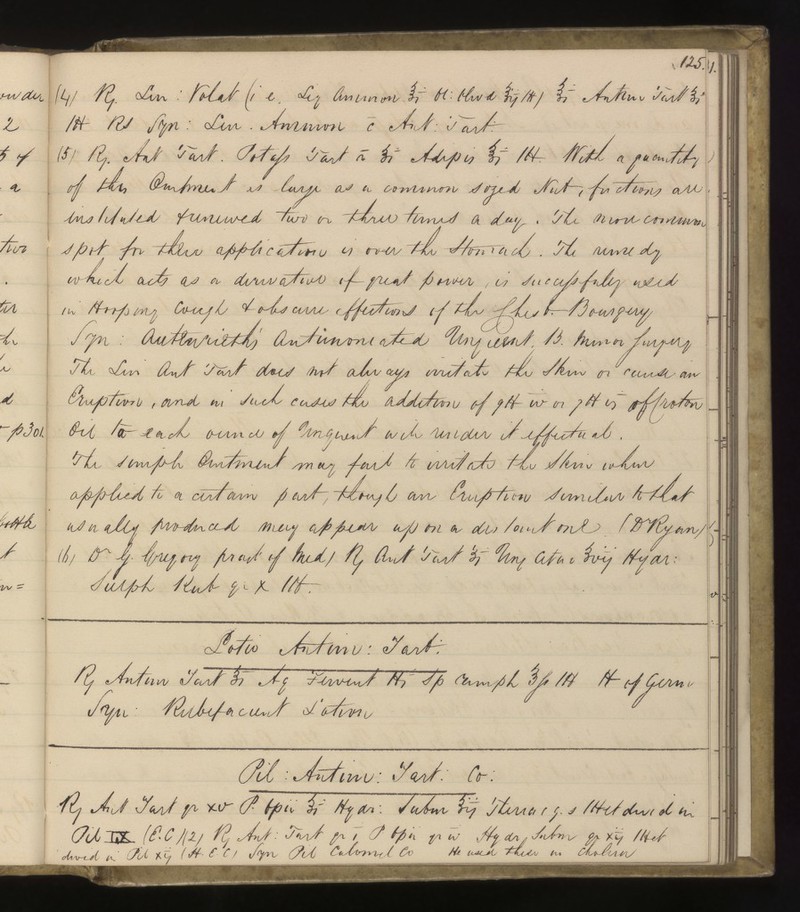 125.
(4) Rx Lin: Volat (i e. Liq Ammon ℥i Ol: Oliv ℥ij M) ℥i Antim Tart ʒi
M Rs Syn: Lin. Ammon c̄ Ant: Tart
(5) Rx. Ant Tart. Potass Tart ā ʒi Adipis ℥i M. With a quantity
of this Ointment as large as a common sized Nut, frictions are
instituted & renewed two or three times a day. The more common
spot for their application is over the Stomach. The remedy
which acts as a derivative of great power, is successfully used
in Hooping Cough & obscure affections of the Chest. Bourgery
Syn: Autenrieth's Antimoniated Unguent. B. Minor Surgery
The Lin Ant Tart does not always irritate the Skin or cause an
Eruption, and in such cases the addition of of Croton
Oil to each ounce of Unguent will render it effectual.
The simple Ointment may fail to irritate the Skin when
applied to a certain part, though an Eruption similar to that
usually produced may appear upon a distant one (Dr Ryan)
(6) Dr G Gregory pract of Med) Rx Ant Tart ʒi Ung Cetac ʒvij Hydr:
Sulph Rub gr x M.
Lotio Antim: Tart:
Rx Antim Tart ʒi Aq Fervent Sp Camph ℥ss M H of Germ
Syn: Rubefacient Lotion
Pil: Antim: Tart: Co:
Rx Ant Tart gr xv P. Opii ʒi Hydr: Subm ʒij Theriac q. s M et divid in
Pil LX (E.C) (2) Rx Ant: Tart gr i P Opii gr iv Hydr Subm gr xij M et
divid in Pil xij (H. E C) Syn Pil Calomel Co He used these in Cholera